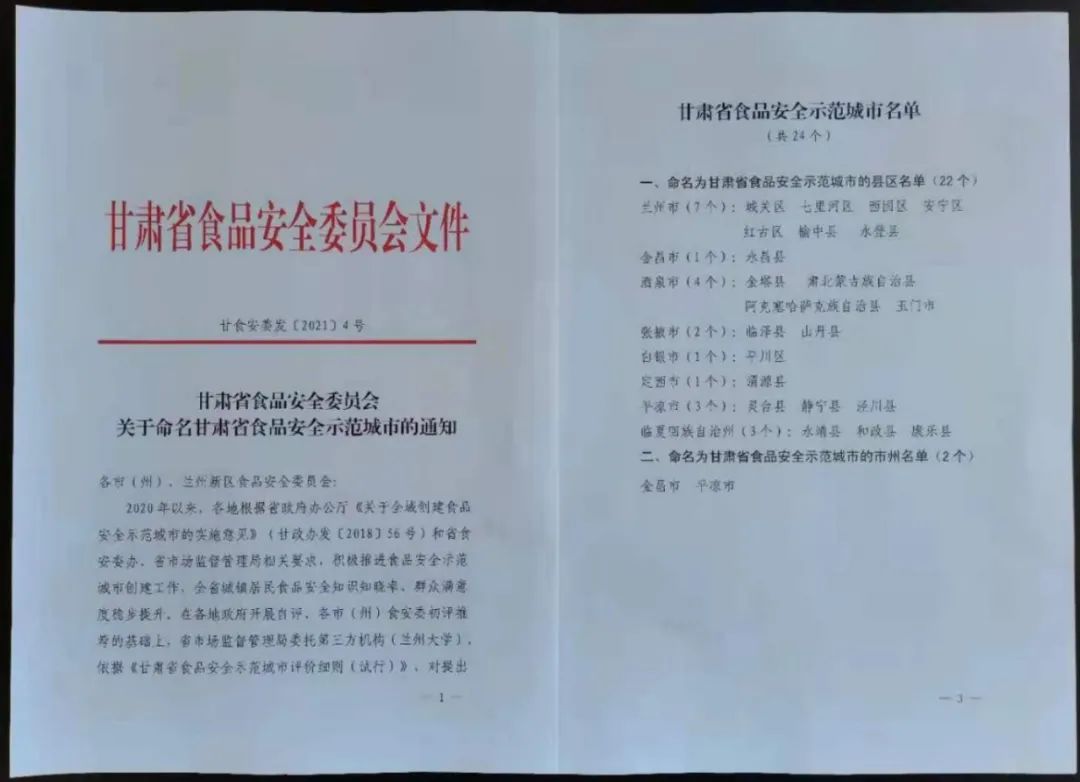 甘肃省食品安全委员会文件
甘食安委发〔2021〕4号
甘肃省食品安全委员会
关于命名甘肃省食品安全示范城市的通知
各市（州）、兰州新区食品安全委员会：
2020年以来，各地根据省政府办公厅《关于全域创建食品
安全示范城市的实施意见》（甘政办发〔2018〕56号）和省食
安委办、省市场监督管理局相关要求，积极推进食品安全示范
城市创建工作，全省城镇居民食品安全知识知晓率、群众满意
度稳步提升。在各地政府开展自评、各市（州）食安委初评推
荐的基础上，省市场监督管理局委托第三方机构（兰州大学），
依据《甘肃省食品安全示范城市评价细则（试行）》，对提出
— 1 —
甘肃省食品安全示范城市名单
（共24个）
一、命名为甘肃省食品安全示范城市的县区名单（22个）
兰州市（7个）：城关区 七里河区 西固区 安宁区
红古区 榆中县 永登县
金昌市（1个）：永昌县
酒泉市（4个）：金塔县 肃北蒙古族自治县
阿克塞哈萨克族自治县 玉门市
张掖市（2个）：临泽县 山丹县
白银市（1个）：平川区
定西市（1个）：渭源县
平凉市（3个）：灵台县 静宁县 泾川县
临夏回族自治州（3个）：永靖县 和政县 康乐县
二、命名为甘肃省食品安全示范城市的市州名单（2个）
金昌市 平凉市
— 3 —